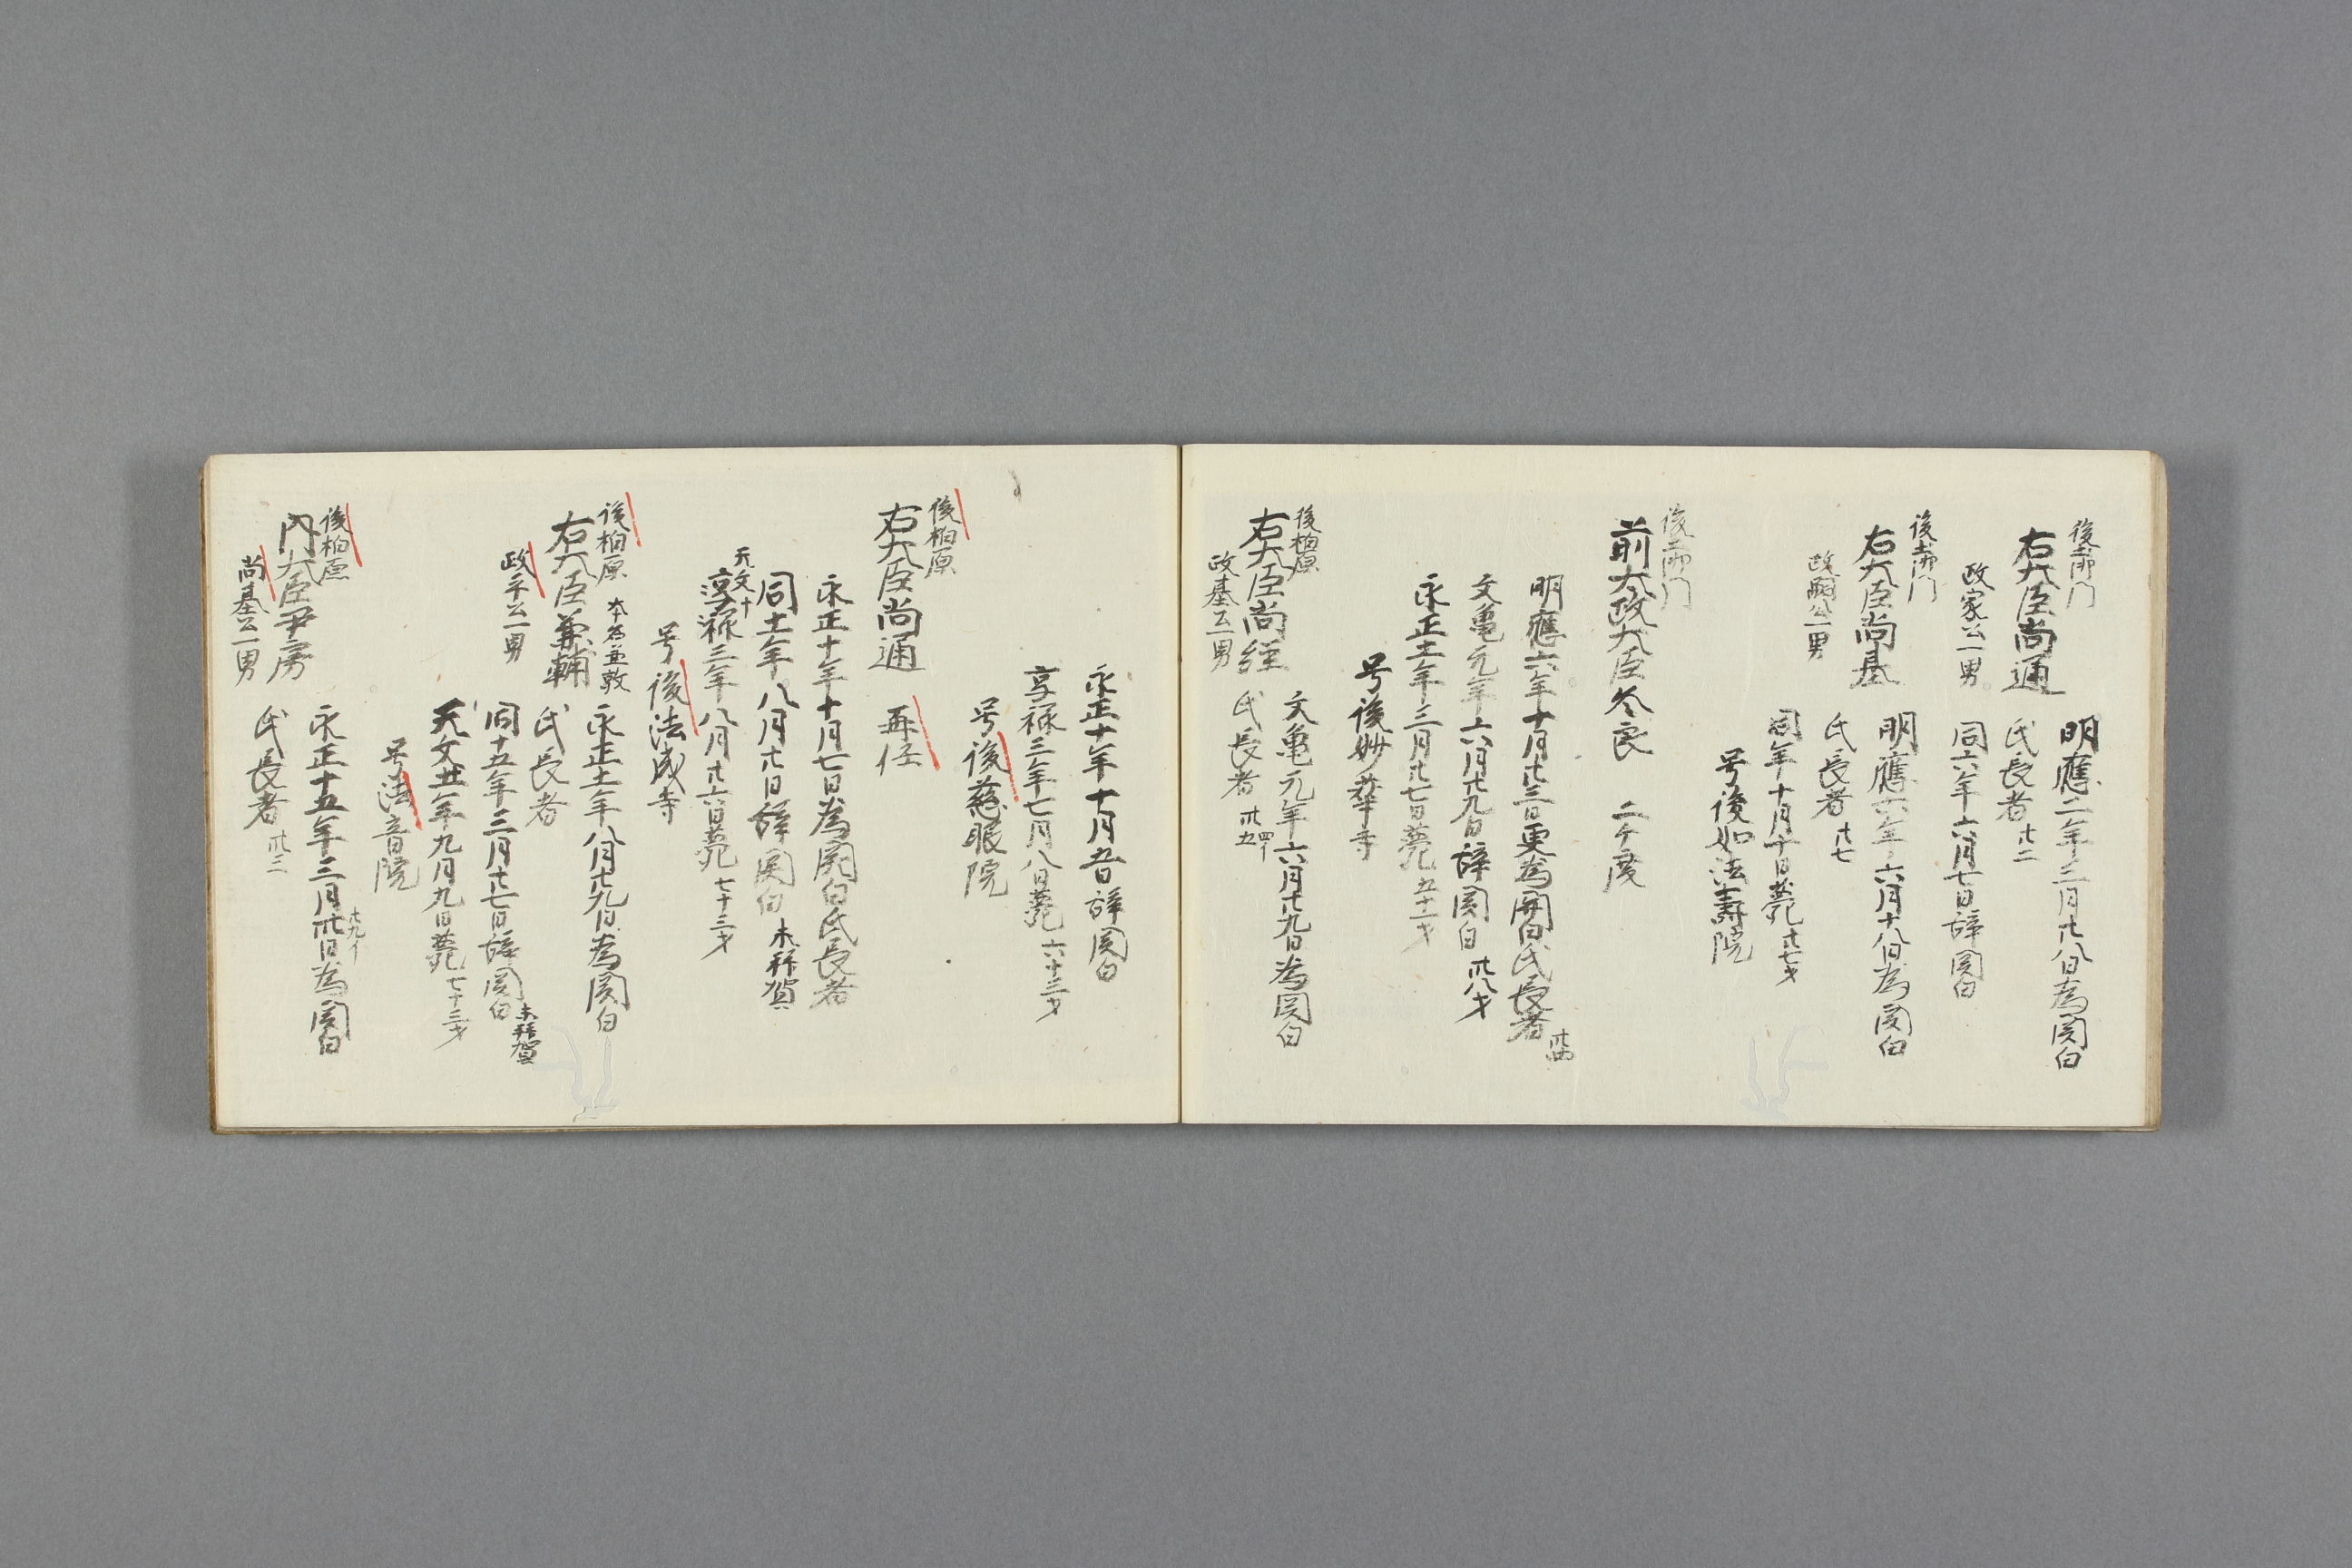 後土御門
右大臣尚通
政家公一男
明應二年三月廿八日為関白
氏長者 廿二
同六年六月七日辞関白
後土御門
右大臣尚基
政嗣公一男
明應六年六月十八日為関白
氏長者 廿七
同年十月十日薨 廿七才
号後如法壽院
後土御門
前太政大臣冬良 二ケ度
明應六年十月廿三日更為関白氏長者 卅四
文亀元年六月廿九日辞関白 卅八才
永正十一年三月廿七日薨 五十一才
号後妙華寺
後柏原
右大臣尚経
政基公一男
文亀元年六月廿九日為関白
氏長者 卅四
永正十年十月五日辞関白
享禄三年七月八日薨 六十三才
号後慈眼院
後柏原
右大臣尚通 再任
永正十年十月七日為関白氏長者
同十一年八月廿日辞関白 未拝賀
天文十
享禄三年八月廿六日薨 七十三才
号後法成寺
後柏原
右大臣兼輔 本名並敦
政平公一男
永正十一年八月廿九日為関白
氏長者
同十五年三月廿七日辞関白 未拝賀
天文廿一年九月九日薨 七十三才
号法音院
後柏原
内大臣尹房
尚基公一男
永正十五年三月卅日為関白
廿九イ
氏長者 廿三